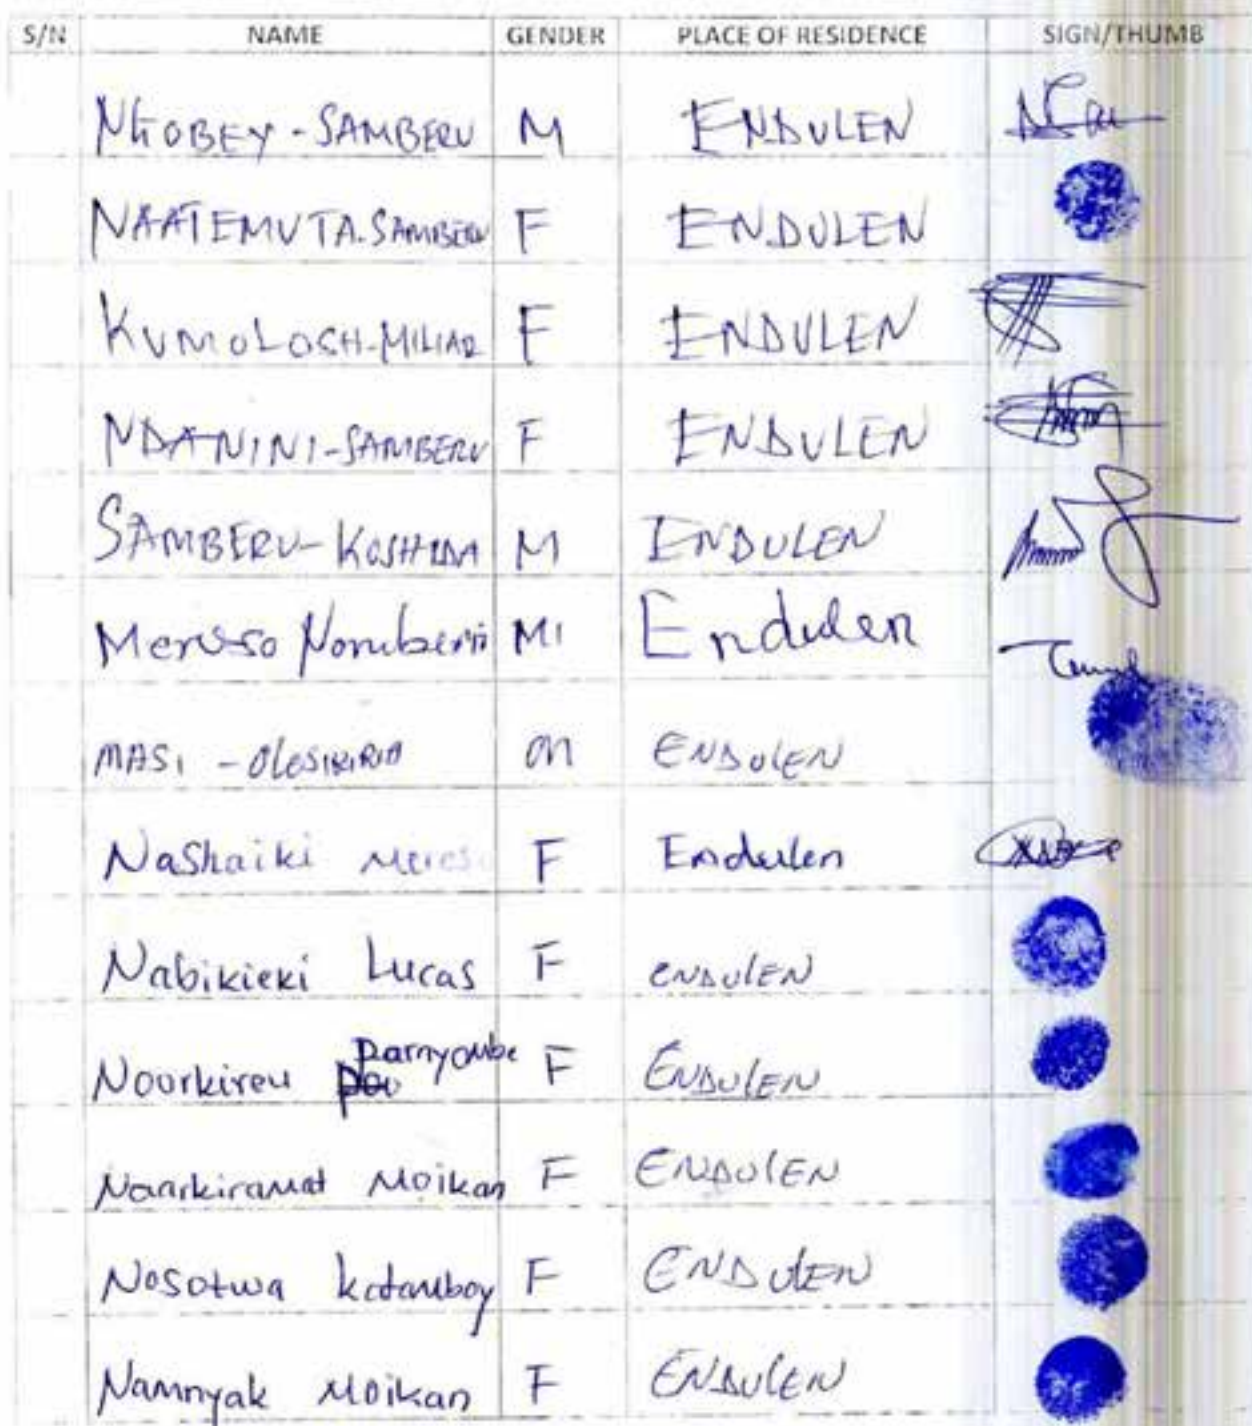 S/N NAME GENDER PLACE OF RESIDENCE SIGN/THUMB
NGOBEY - SAMBERU M ENDULEN
NAATEMUTA. SAMBERU F ENDULEN
KUMOLOSH-MILIAR F ENDULEN
NDANINI-SAMBERU F ENDULEN
SAMBERU- M ENDULEN
Meruso M ENDULEN
MASI - M ENDULEN
Nashaiki Mereso F Endulen
Nabikieki Lucas F ENDULEN
Noorkireu Parnyombe F ENDULEN
Naarkiramat Moikan F ENDULEN
Nosotwa Katamboy F ENDULEN
Namnyak Moikan F ENDULEN